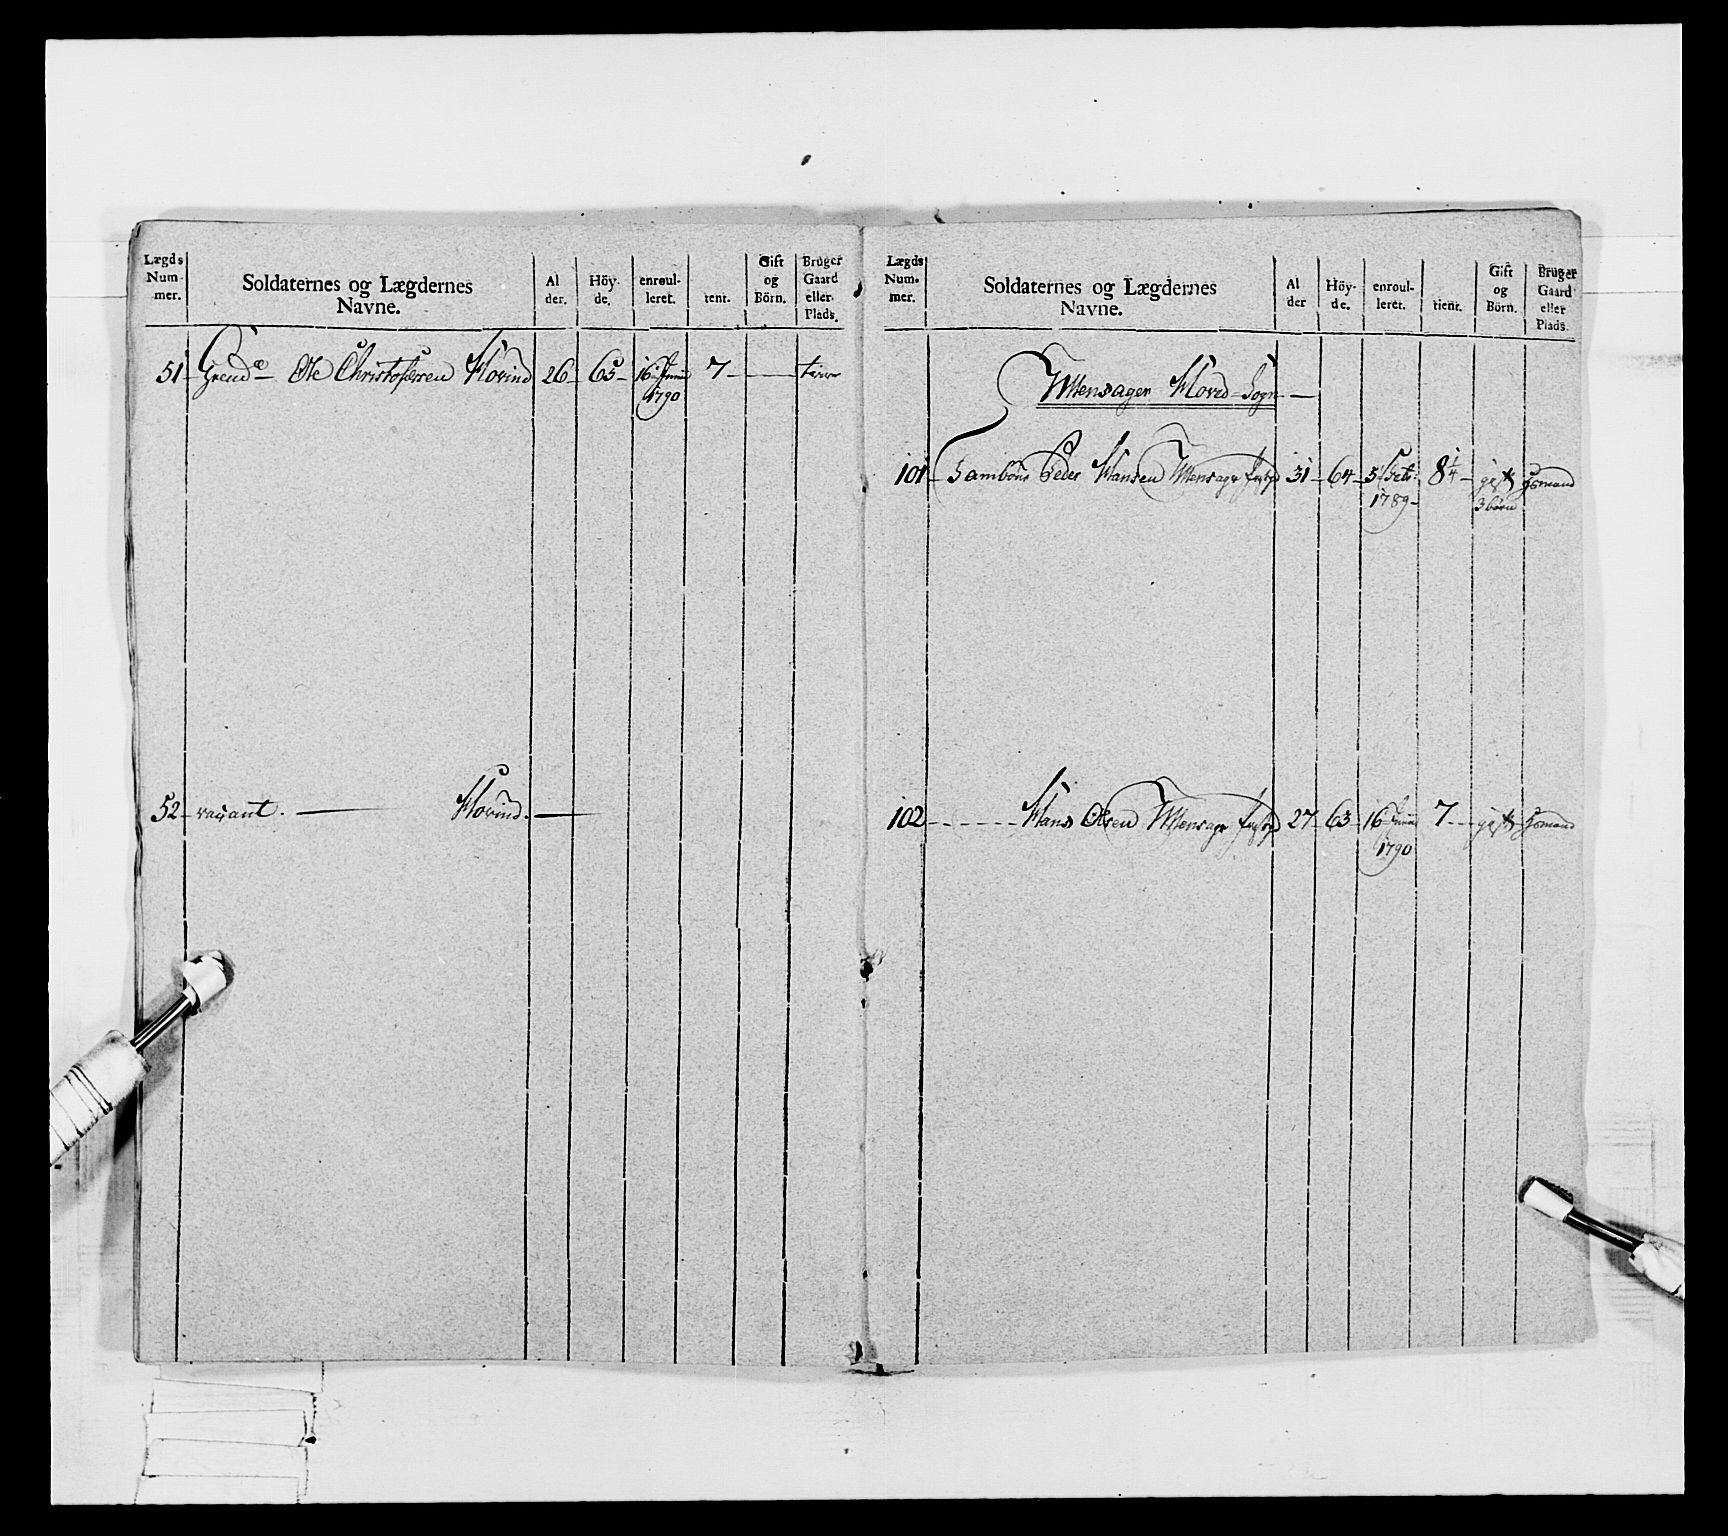 Lægds Num- mer.
Soldaternes og Lægdernes Navne.
Al der.
Höy- de.
enroul- leret.
tent.
Gift og Börn.
Bruger Gaard eller Plads.
51 Grend Ole Christofersen Hovind 26 65 16 Junii 7
1790
52 vacant. Hovind.
Lægds Num- mer.
Soldaternes og Lægdernes Navne.
Al der
Höy- de.
enroul- leret.
tient.
Gift og Börn.
Bruger Gaard eller Plads.
Mensager Hoved-Sogn
101 Tambour Peder Hansen Mensager 31 64 8 1/4 gift
1789 3 börn
102 Hans Olsen Mensager 27 63 16 Junii 7 gift
1790